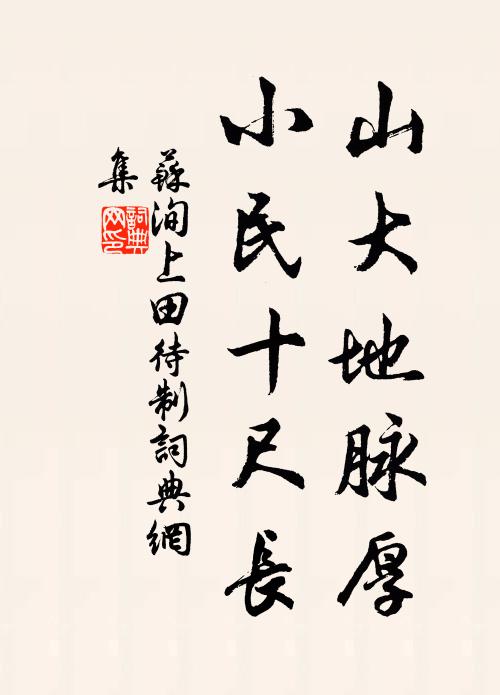 山大地脉厚
小民十尺長
蘇洵上田待制詞典網
集
詞典网印